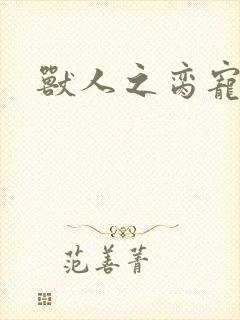 獸人之脔寵
范善菁